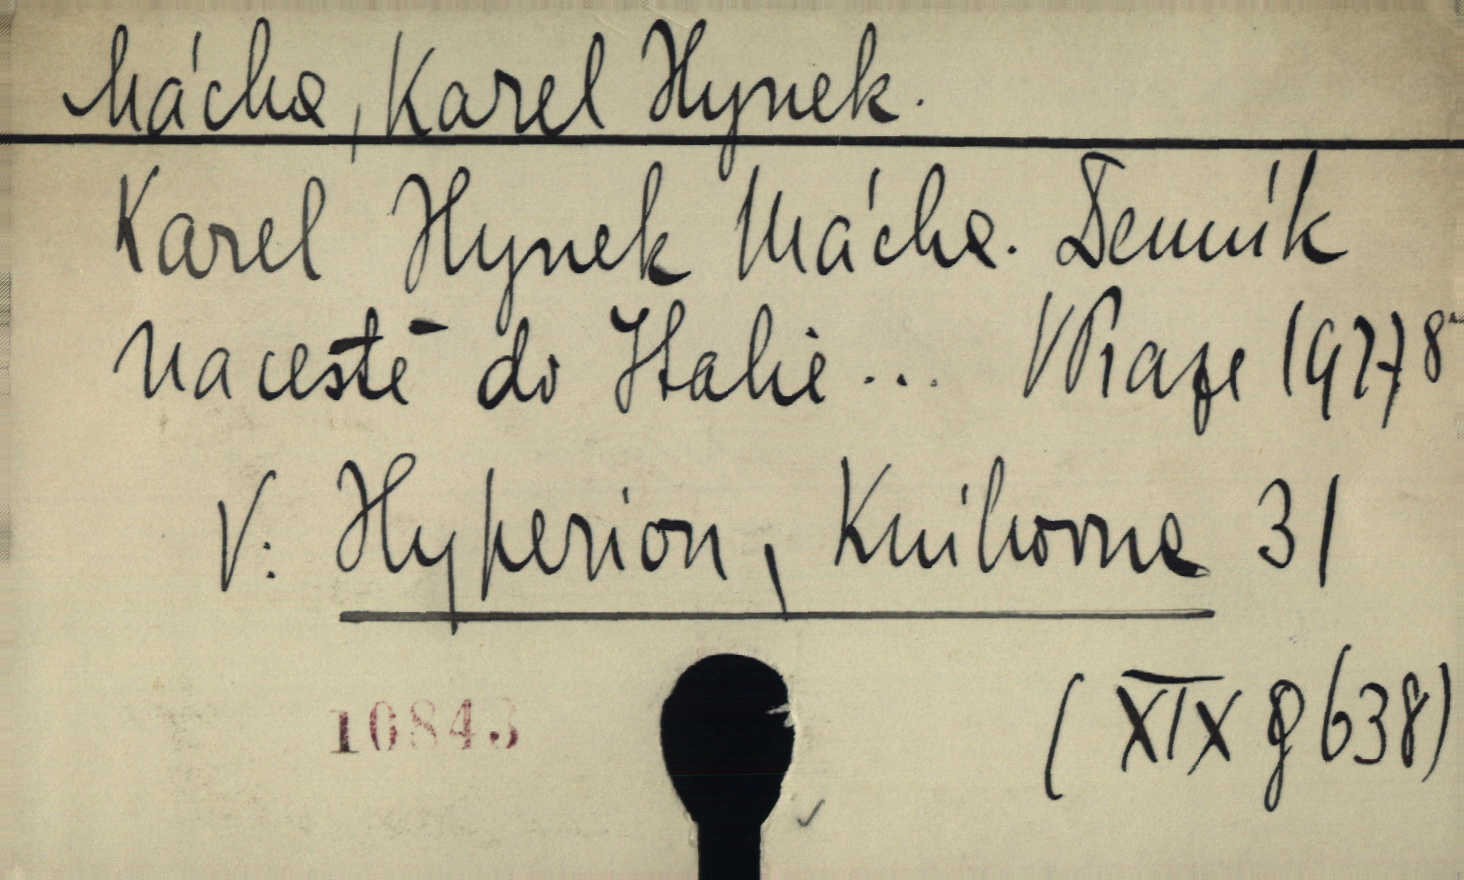 Mácha, Karel Hynek.
Karel Hynek Mácha. Denník
na cestě do Italie ... V Praze 1927 8°
V: Hyperion, Knihovna 31
10843
(XIX g 638)